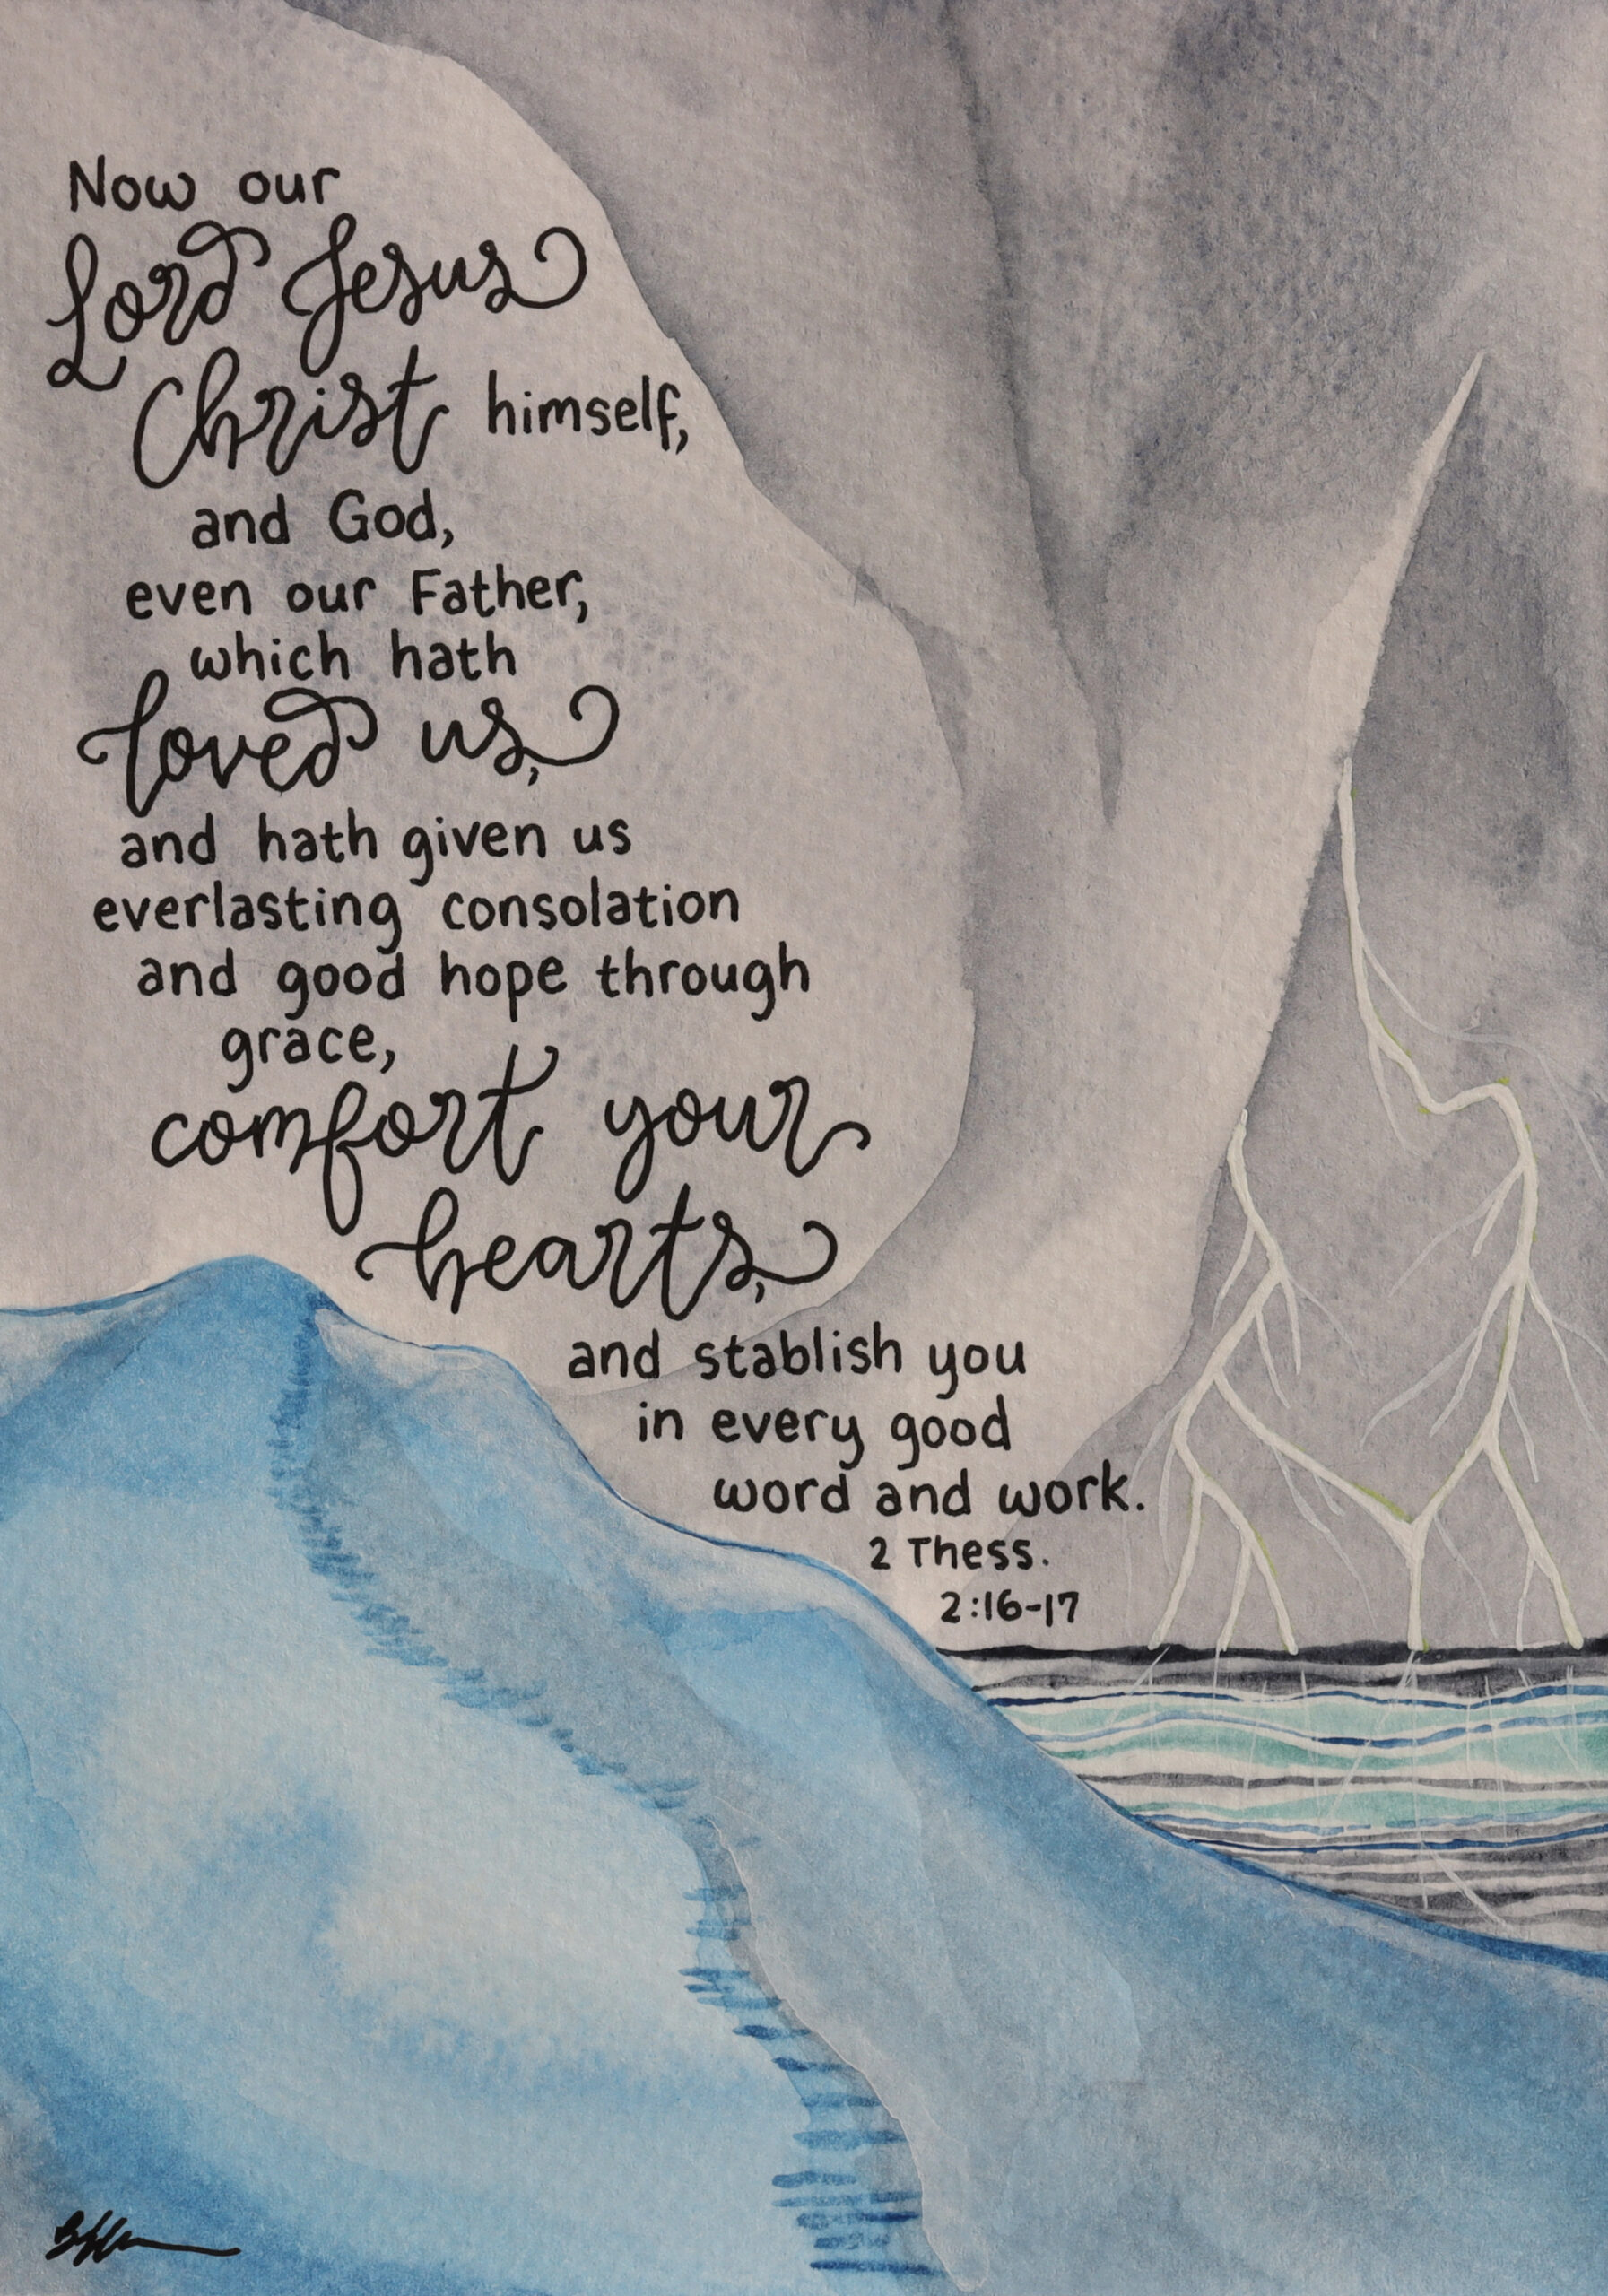 Now our
Lord Jesus
Christ himself,
and God,
even our Father,
which hath
loved us,
and hath given us
everlasting consolation
and good hope through
grace,
comfort your
hearts,
and stablish you
in every good
word and work.
2 Thess.
2:16-17